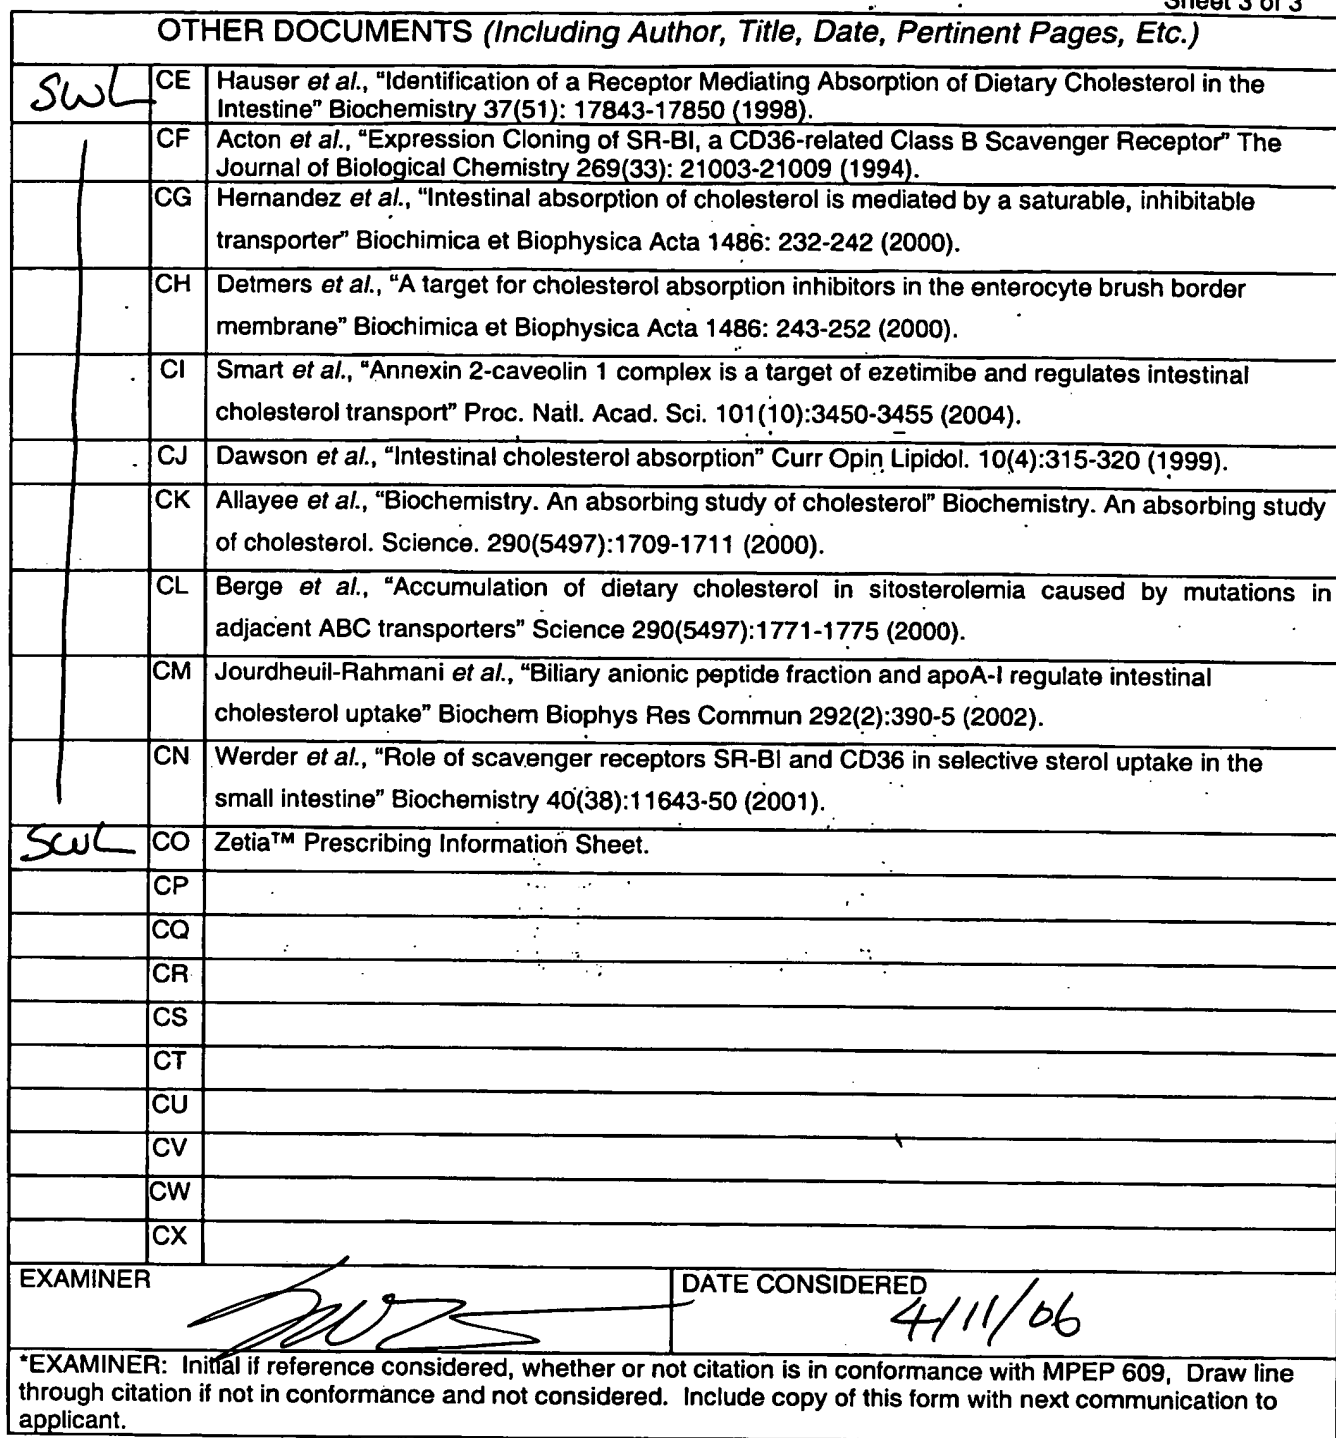 Sheet 3 of 3
OTHER DOCUMENTS (Including Author, Title, Date, Pertinent Pages, Etc.)
SWL CE Hauser et al., "Identification of a Receptor Mediating Absorption of Dietary Cholesterol in the
Intestine" Biochemistry 37(51): 17843-17850 (1998).
CF Acton et al., "Expression Cloning of SR-BI, a CD36-related Class B Scavenger Receptor" The
Journal of Biological Chemistry 269(33): 21003-21009 (1994).
CG Hernandez et al., "Intestinal absorption of cholesterol is mediated by a saturable, inhibitable
transporter" Biochimica et Biophysica Acta 1486: 232-242 (2000).
CH Detmers et al., "A target for cholesterol absorption inhibitors in the enterocyte brush border
membrane" Biochimica et Biophysica Acta 1486: 243-252 (2000).
CI Smart et al., "Annexin 2-caveolin 1 complex is a target of ezetimibe and regulates intestinal
cholesterol transport" Proc. Natl. Acad. Sci. 101(10):3450-3455 (2004).
CJ Dawson et al., "Intestinal cholesterol absorption" Curr Opin Lipidol. 10(4):315-320 (1999).
CK Allayee et al., "Biochemistry. An absorbing study of cholesterol" Biochemistry. An absorbing study
of cholesterol. Science. 290(5497):1709-1711 (2000).
CL Berge et al., "Accumulation of dietary cholesterol in sitosterolemia caused by mutations in
adjacent ABC transporters" Science 290(5497):1771-1775 (2000).
CM Jourdheuil-Rahmani et al., "Biliary anionic peptide fraction and apoA-I regulate intestinal
cholesterol uptake" Biochem Biophys Res Commun 292(2):390-5 (2002).
CN Werder et al., "Role of scavenger receptors SR-BI and CD36 in selective sterol uptake in the
small intestine" Biochemistry 40(38):11643-50 (2001).
SWL CO Zetia™ Prescribing Information Sheet.
CP
CQ
CR
CS
CT
CU
CV
CW
CX
EXAMINER DATE CONSIDERED
4/11/06
*EXAMINER: Initial if reference considered, whether or not citation is in conformance with MPEP 609, Draw line
through citation if not in conformance and not considered. Include copy of this form with next communication to
applicant.